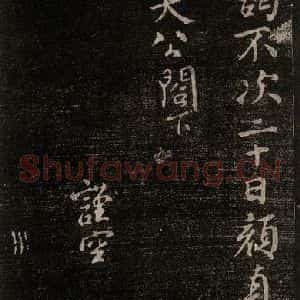 不次二十日顏真
大公閤下
謹空
Shufawang.CN